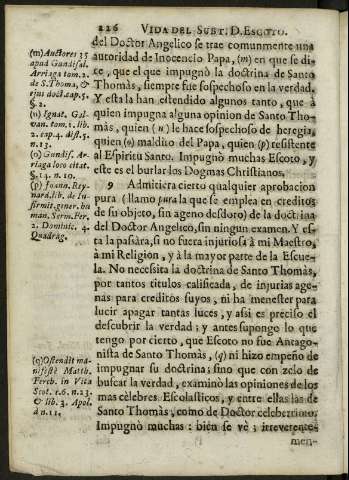 226 VIDA DEL SUBT. D. ESCOTO.
del Doctor Angelico se trae comunmente una
autoridad de Inocencio Papa, (m) en que se di-
ce, que el que impugnò la doctrina de Santo
Thomàs, siempre fue sospechoso en la verdad.
Y esta la han estendido algunos tanto, que à
quien impugna alguna opinion de Santo Tho-
màs, quien (n) le hace sospechoso de heregia,
quien (o) maldito del Papa, quien (p) resistente
al Espiritu Santo. Impugnò muchas Escoto, y
este es el burlar los Dogmas Christianos.
9 Admitiera cierto qualquier aprobacion
pura (llamo pura la que se emplea en creditos
de su objeto, sin ageno desdoro) de la doctrina
del Doctor Angelico, sin ningun examen. Y es-
ta la pasàra, si no fuera injuriosa à mi Maestro,
à mi Religion, y à la mayor parte de la Escue-
la. No necesita la doctrina de Santo Thomàs,
por tantos titulos calificada, de injurias age-
nas para creditos suyos, ni ha menester para
lucir apagar tantas luces, y asi es preciso el
descubrir la verdad; y antes supongo lo que
tengo por cierto, que Escoto no fue Antago-
nista de Santo Thomàs, (q) ni hizo empeño de
impugnar su doctrina; sino que con zelo de
buscar la verdad, examinò las opiniones de los
mas cèlebres Escolasticos, y entre ellas las de
Santo Thomàs, como de Doctor celeberrimo.
Impugnò muchas: bien se vè; irreverente-
men-
(m) Auctores 35
apud Gundisal.
Arriaga tom. 2.
de S. Thoma, &
ejus doct. cap. 5.
§. 2.
(n) Ignat. Gal-
van. tom. 1. lib.
2. cap. 4. dist. 5.
n. 13.
(o) Gundis. Ar-
riaga loco citat.
§. 14. n. 10.
(p) Joann. Rey-
nard. lib. de In-
firmit. gener. hu
man. Serm. Fer.
2. Dominic. 4.
Quadrag.
(q) Ostendit ma-
nifestè Matth.
Ferch. in Vita
Scot. c. 6. n. 23.
& lib. 3. Apol.
à n. 11.